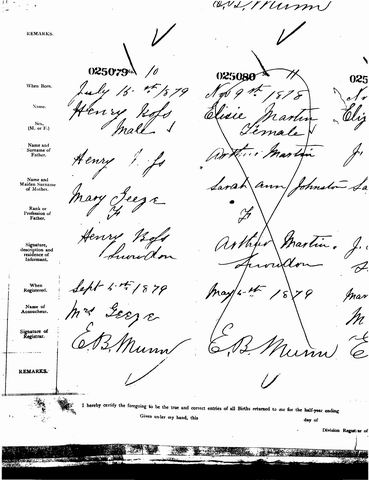 E.B. Munn
REMARKS.
025079 10 025080 11 025
When Born. July 15th 1879 Nov 9th 1878 No
Name. Henry Elsie Martin Eliz
Sex, (M. or F.) Male Female
Name and Surname of Father. Henry Arthur Martin J
Name and Maiden Surname of Mother. Mary Sarah Ann Johnston Sa
Rank or Profession of Father.
Signature, description and residence of Informant. Henry Arthur Martin J.
Snowdon Snowdon
When Registered. Sept 4th 1879 May 4th 1879 Mar
Name of Accoucheur. Mrs M
Signature of Registrar. E.B. Munn E.B. Munn E
REMARKS.
I hereby certify the foregoing to be the true and correct entries of all Births returned to me for the half-year ending
Given under my hand, this day of
Division Registrar of